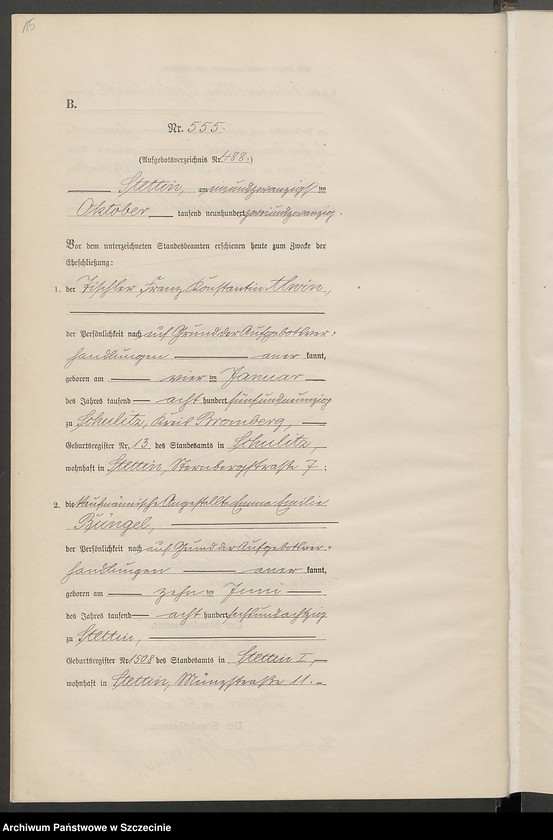 15
B.
Nr. 555.
(Aufgebotsverzeichnis Nr. 488.)
Stettin, am einundzwanzigsten
Oktober tausend neunhundert zweiundzwanzig.
Vor dem unterzeichneten Standesbeamten erschienen heute zum Zwecke der
Eheschließung:
1. der Tischler Franz Konstantin Alwin,
der Persönlichkeit nach auf Grund der Aufgebotsver-
handlungen aner kannt,
geboren am vier ten Januar
des Jahres tausend acht hundert fünfundneunzig
zu Schulitz, Kreis Bromberg,
Geburtsregister Nr. 13 des Standesamts in Schulitz,
wohnhaft in Stettin, Sternbergstraße 7;
2. die kaufmännische Angestellte Emma Emilie
Büngel,
der Persönlichkeit nach auf Grund der Aufgebotsver-
handlungen aner kannt,
geboren am zehn ten Juni
des Jahres tausend acht hundert sechsundachtzig
zu Stettin,
Geburtsregister Nr. 1508 des Standesamts in Stettin I,
wohnhaft in Stettin, Münzstraße 11.
Archiwum Państwowe w Szczecinie